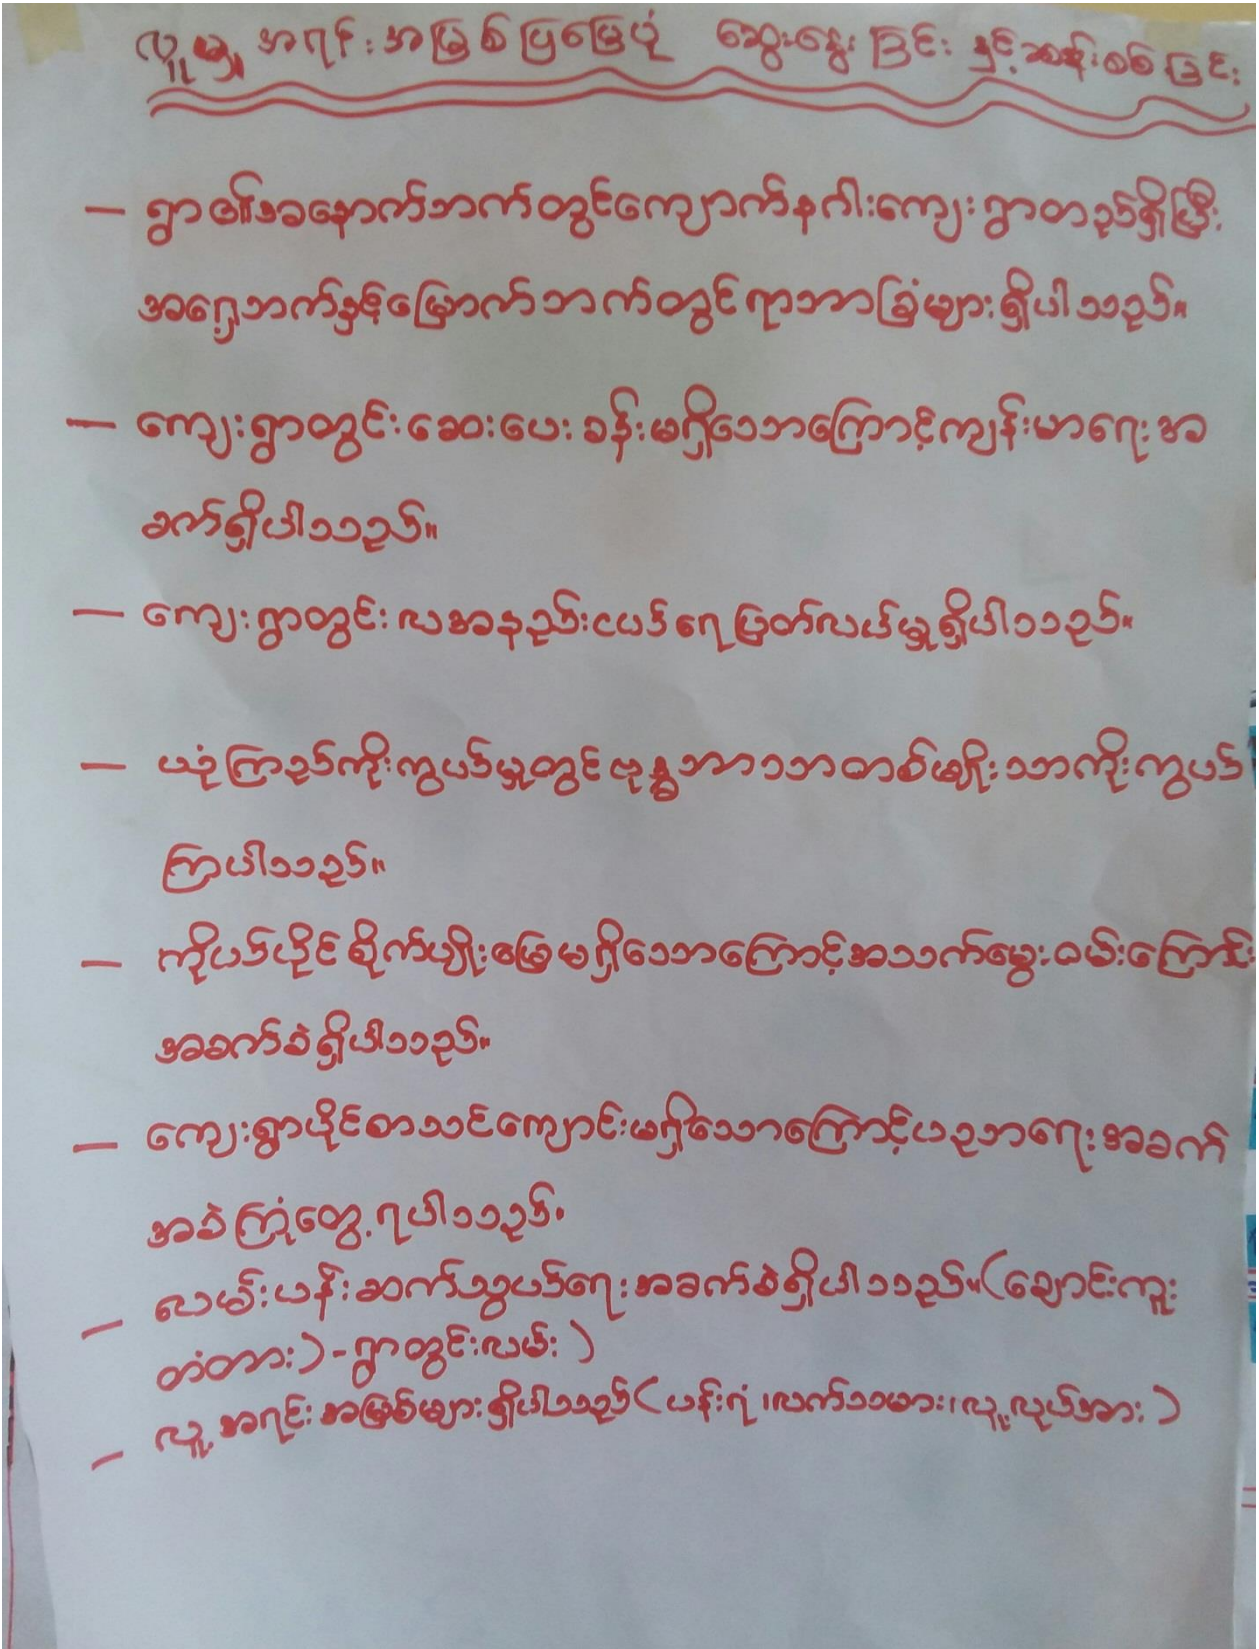 လူမှု အရင်းအမြစ်ပြမြေပုံ ဆွေးနွေးခြင်း နှင့်ဆန်းစစ်ခြင်း
- ရွာ၏အနောက်ဘက်တွင်ကျောက်နဂါးကျေးရွာတည်ရှိပြီး
အရှေ့ဘက်နှင့်မြောက်ဘက်တွင်ရာဘာခြံများရှိပါသည်။
- ကျေးရွာတွင်းဆေးပေးခန်းမရှိသောကြောင့်ကျန်းမာရေးအ
ခက်ရှိပါသည်။
- ကျေးရွာတွင်းလအနည်းငယ်ရေပြတ်လပ်မှုရှိပါသည်။
- ယုံကြည်ကိုးကွယ်မှုတွင်ဗုဒ္ဓဘာသာတစ်မျိုးသာကိုးကွယ်
ကြပါသည်။
- ကိုယ်ပိုင်စိုက်ပျိုးမြေမရှိသောကြောင့်အသက်မွေးဝမ်းကြောင်း
အခက်ခဲရှိပါသည်။
- ကျေးရွာပိုင်စာသင်ကျောင်းမရှိသောကြောင့်ပညာရေးအခက်
အခဲကြုံတွေ့ရပါသည်။
- လမ်းပန်းဆက်သွယ်ရေးအခက်ခဲရှိပါသည်။(ချောင်းကူး
တံတား)-ရွာတွင်းလမ်း)
- လူ့အရင်းအမြစ်များရှိပါသည်(ပန်းရံ၊လက်သမား၊လူ့လုပ်အား)